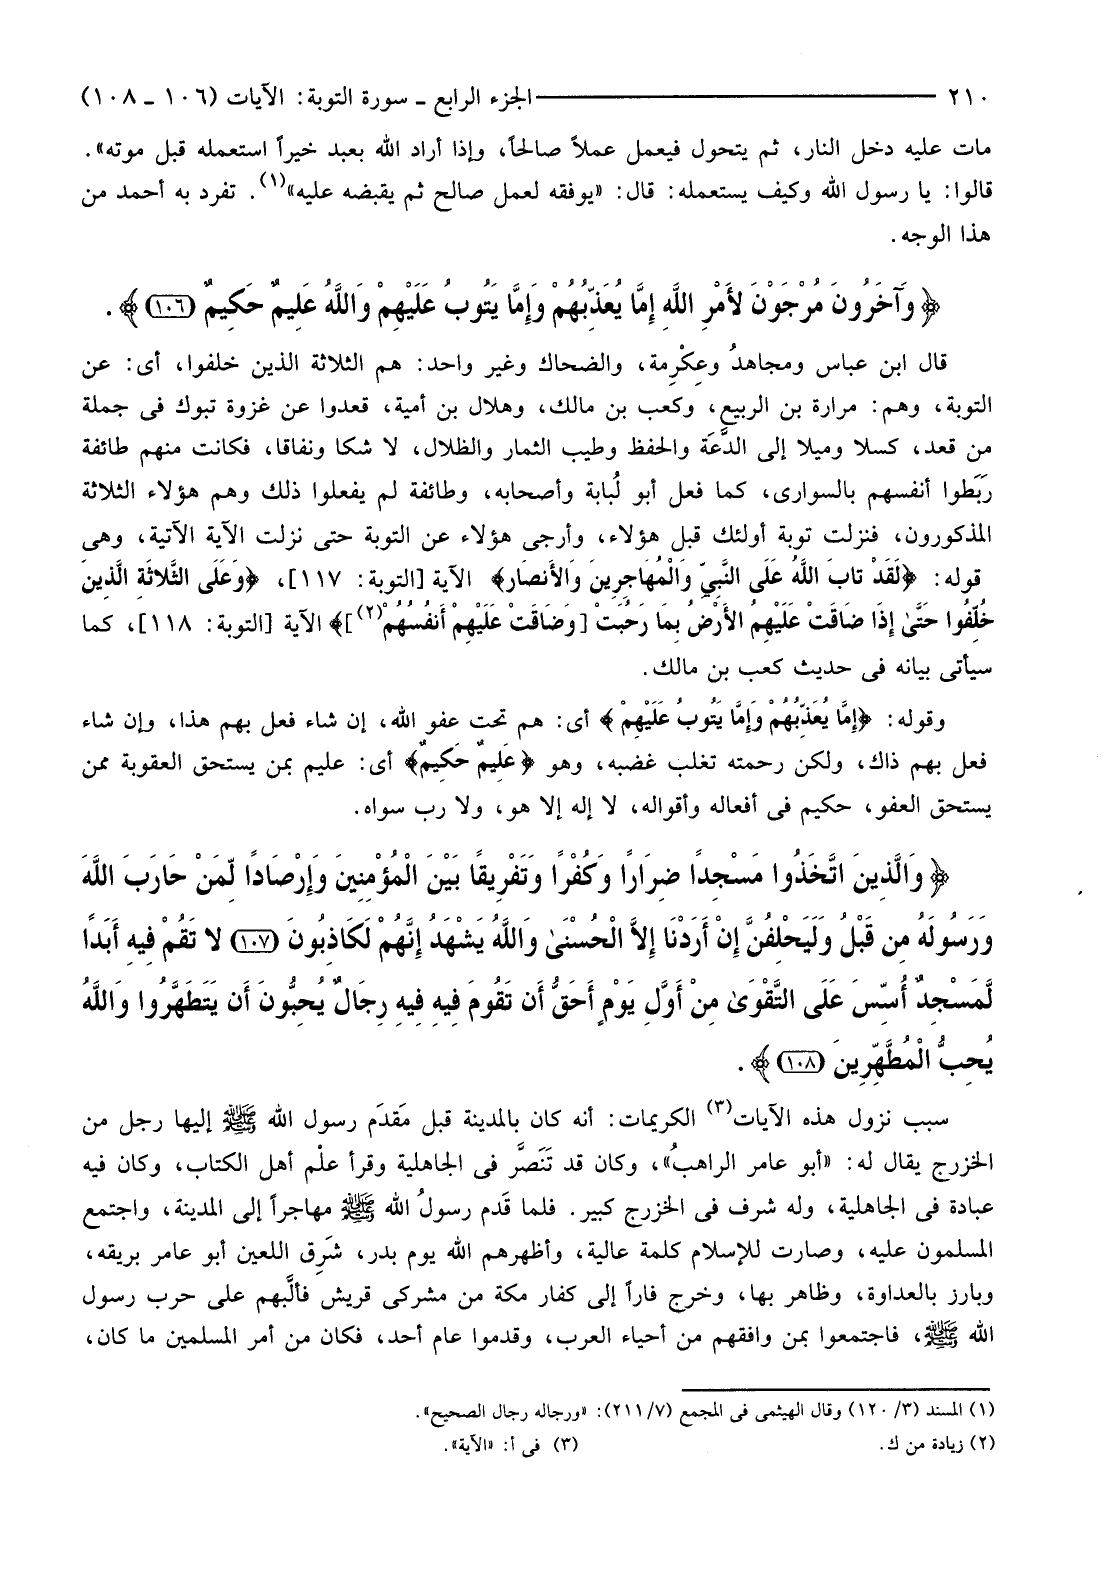 ٢١٠ ــــــــــــــــ الجزء الرابع ـ سورة التوبة: الآيات (١٠٦ ـ ١٠٨)
مات عليه دخل النار، ثم يتحول فيعمل عملاً صالحاً، وإذا أراد الله بعبد خيراً استعمله قبل موته».
قالوا: يا رسول الله وكيف يستعمله: قال: «يوفقه لعمل صالح ثم يقبضه عليه»(١). تفرد به أحمد من
هذا الوجه.
﴿وَآخَرُونَ مُرْجَوْنَ لأَمْرِ اللَّهِ إِمَّا يُعَذِّبُهُمْ وَإِمَّا يَتُوبُ عَلَيْهِمْ وَاللَّهُ عَلِيمٌ حَكِيمٌ (١٠٦)﴾.
قال ابن عباس ومجاهدُ وعِكْرِمة، والضحاك وغير واحد: هم الثلاثة الذين خلفوا، أى: عن
التوبة، وهم: مرارة بن الربيع، وكعب بن مالك، وهلال بن أمية، قعدوا عن غزوة تبوك فى جملة
من قعد، كسلا وميلا إلى الدَّعَة والحفظ وطيب الثمار والظلال، لا شكا ونفاقا، فكانت منهم طائفة
رَبَطوا أنفسهم بالسوارى، كما فعل أبو لُبابة وأصحابه، وطائفة لم يفعلوا ذلك وهم هؤلاء الثلاثة
المذكورون، فنزلت توبة أولئك قبل هؤلاء، وأرجى هؤلاء عن التوبة حتى نزلت الآية الآتية، وهى
قوله: ﴿لَقَدْ تابَ اللَّهُ عَلَى النَّبِيِّ وَالْمُهَاجِرِينَ وَالأَنصَارِ﴾ الآية [التوبة: ١١٧]، ﴿وَعَلَى الثَّلاثَةِ الَّذِينَ
خُلِّفُوا حَتَّىٰ إِذَا ضَاقَتْ عَلَيْهِمُ الأَرْضُ بِمَا رَحُبَتْ [وَضَاقَتْ عَلَيْهِمْ أَنفُسُهُمْ(٢)]﴾ الآية [التوبة: ١١٨]، كما
سيأتى بيانه فى حديث كعب بن مالك.
وقوله: ﴿إِمَّا يُعَذِّبُهُمْ وَإِمَّا يَتُوبُ عَلَيْهِمْ﴾ أى: هم تحت عفو الله، إن شاء فعل بهم هذا، وإن شاء
فعل بهم ذاك، ولكن رحمته تغلب غضبه، وهو ﴿عَلِيمٌ حَكِيمٌ﴾ أى: عليم بمن يستحق العقوبة ممن
يستحق العفو، حكيم فى أفعاله وأقواله، لا إله إلا هو، ولا رب سواه.
﴿وَالَّذِينَ اتَّخَذُوا مَسْجِدًا ضِرَارًا وَكُفْرًا وَتَفْرِيقًا بَيْنَ الْمُؤْمِنِينَ وَإِرْصَادًا لِّمَنْ حَارَبَ اللَّهَ
وَرَسُولَهُ مِن قَبْلُ وَلَيَحْلِفُنَّ إِنْ أَرَدْنَا إِلاَّ الْحُسْنَىٰ وَاللَّهُ يَشْهَدُ إِنَّهُمْ لَكَاذِبُونَ (١٠٧) لا تَقُمْ فِيهِ أَبَدًا
لَّمَسْجِدٌ أُسِّسَ عَلَى التَّقْوَىٰ مِنْ أَوَّلِ يَوْمٍ أَحَقُّ أَن تَقُومَ فِيهِ فِيهِ رِجَالٌ يُحِبُّونَ أَن يَتَطَهَّرُوا وَاللَّهُ
يُحِبُّ الْمُطَّهِّرِينَ (١٠٨)﴾.
سبب نزول هذه الآيات(٣) الكريمات: أنه كان بالمدينة قبل مَقدَم رسول الله ﷺ إليها رجل من
الخزرج يقال له: «أبو عامر الراهبُ»، وكان قد تَنَصَّر فى الجاهلية وقرأ علْم أهل الكتاب، وكان فيه
عبادة فى الجاهلية، وله شرف فى الخزرج كبير. فلما قَدم رسولُ الله ﷺ مهاجراً إلى المدينة، واجتمع
المسلمون عليه، وصارت للإسلام كلمة عالية، وأظهرهم الله يوم بدر، شَرِق اللعين أبو عامر بريقه،
وبارز بالعداوة، وظاهر بها، وخرج فاراً إلى كفار مكة من مشركى قريش فألَّبهم على حرب رسول
الله ﷺ، فاجتمعوا بمن وافقهم من أحياء العرب، وقدموا عام أحد، فكان من أمر المسلمين ما كان،
(١) المسند (٣/ ١٢٠) وقال الهيثمى فى المجمع (٧/ ٢١١): «ورجاله رجال الصحيح».
(٢) زيادة من ك. (٣) فى أ: «الآية».